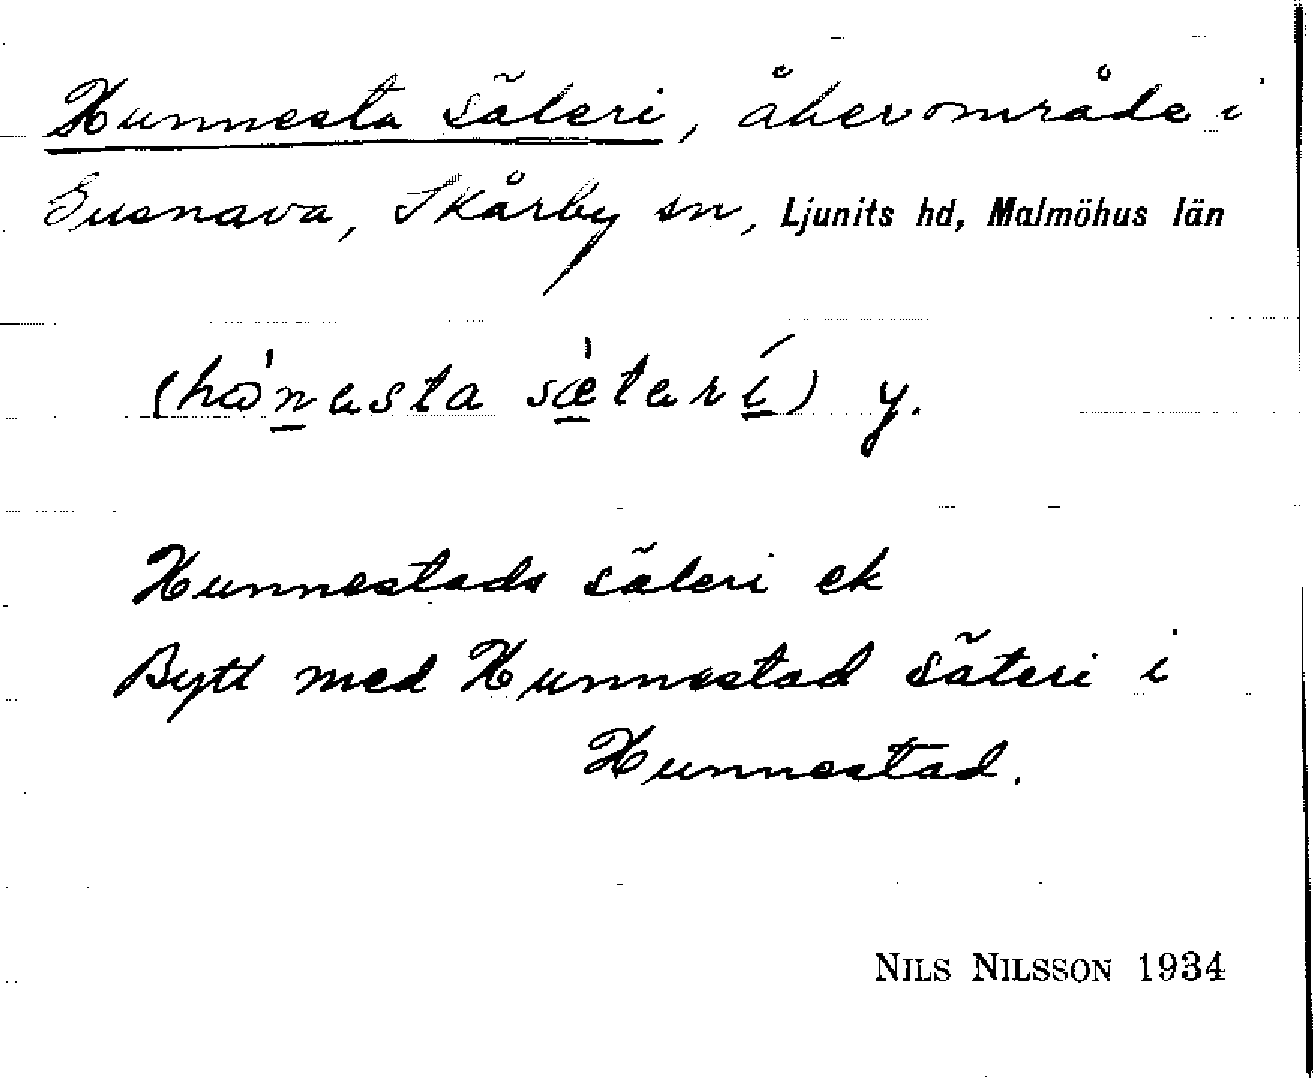 Hunnesta säteri, åkerområde i
Gusnava, Skårby sn, Ljunits hd, Malmöhus län
(hὼnasta sæ̀tarí) y.
Hunnestads säteri ek
Bytt med Hunnestad säteri i
Hunnestad.
NILS NILSSON 1934